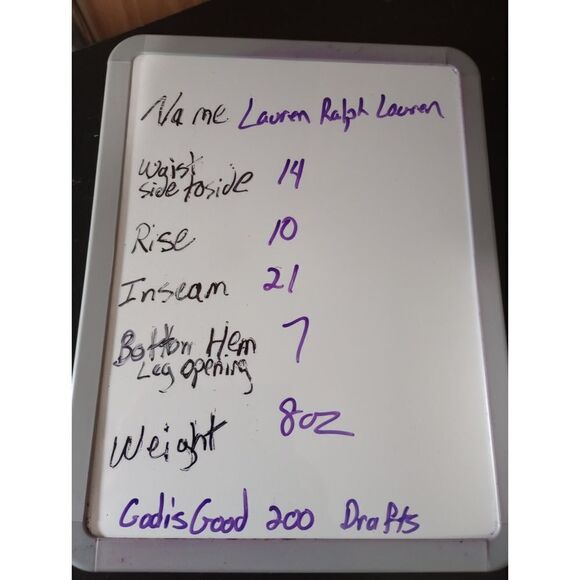 Name Lauren Ralph Lauren
Waist
side to side 14
Rise 10
Inseam 21
Bottom Hem 7
Leg opening
Weight 8oz
GodisGood 200 Drafts